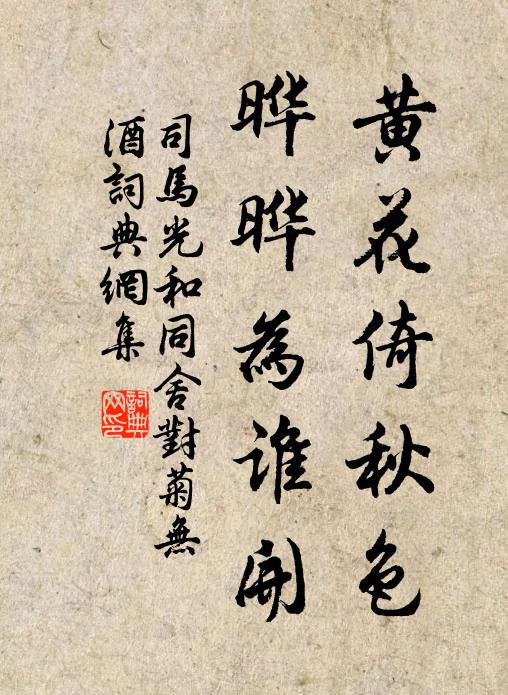 黄花倚秋色
晔晔為誰開
司馬光和同舍對菊無
酒詞典網集
詞典
网印